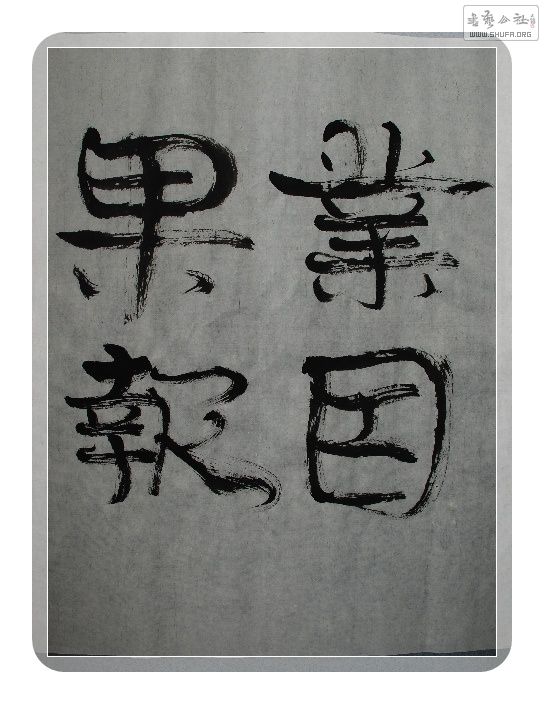 業因
果報
書藝公社
WWW.SHUFA.ORG